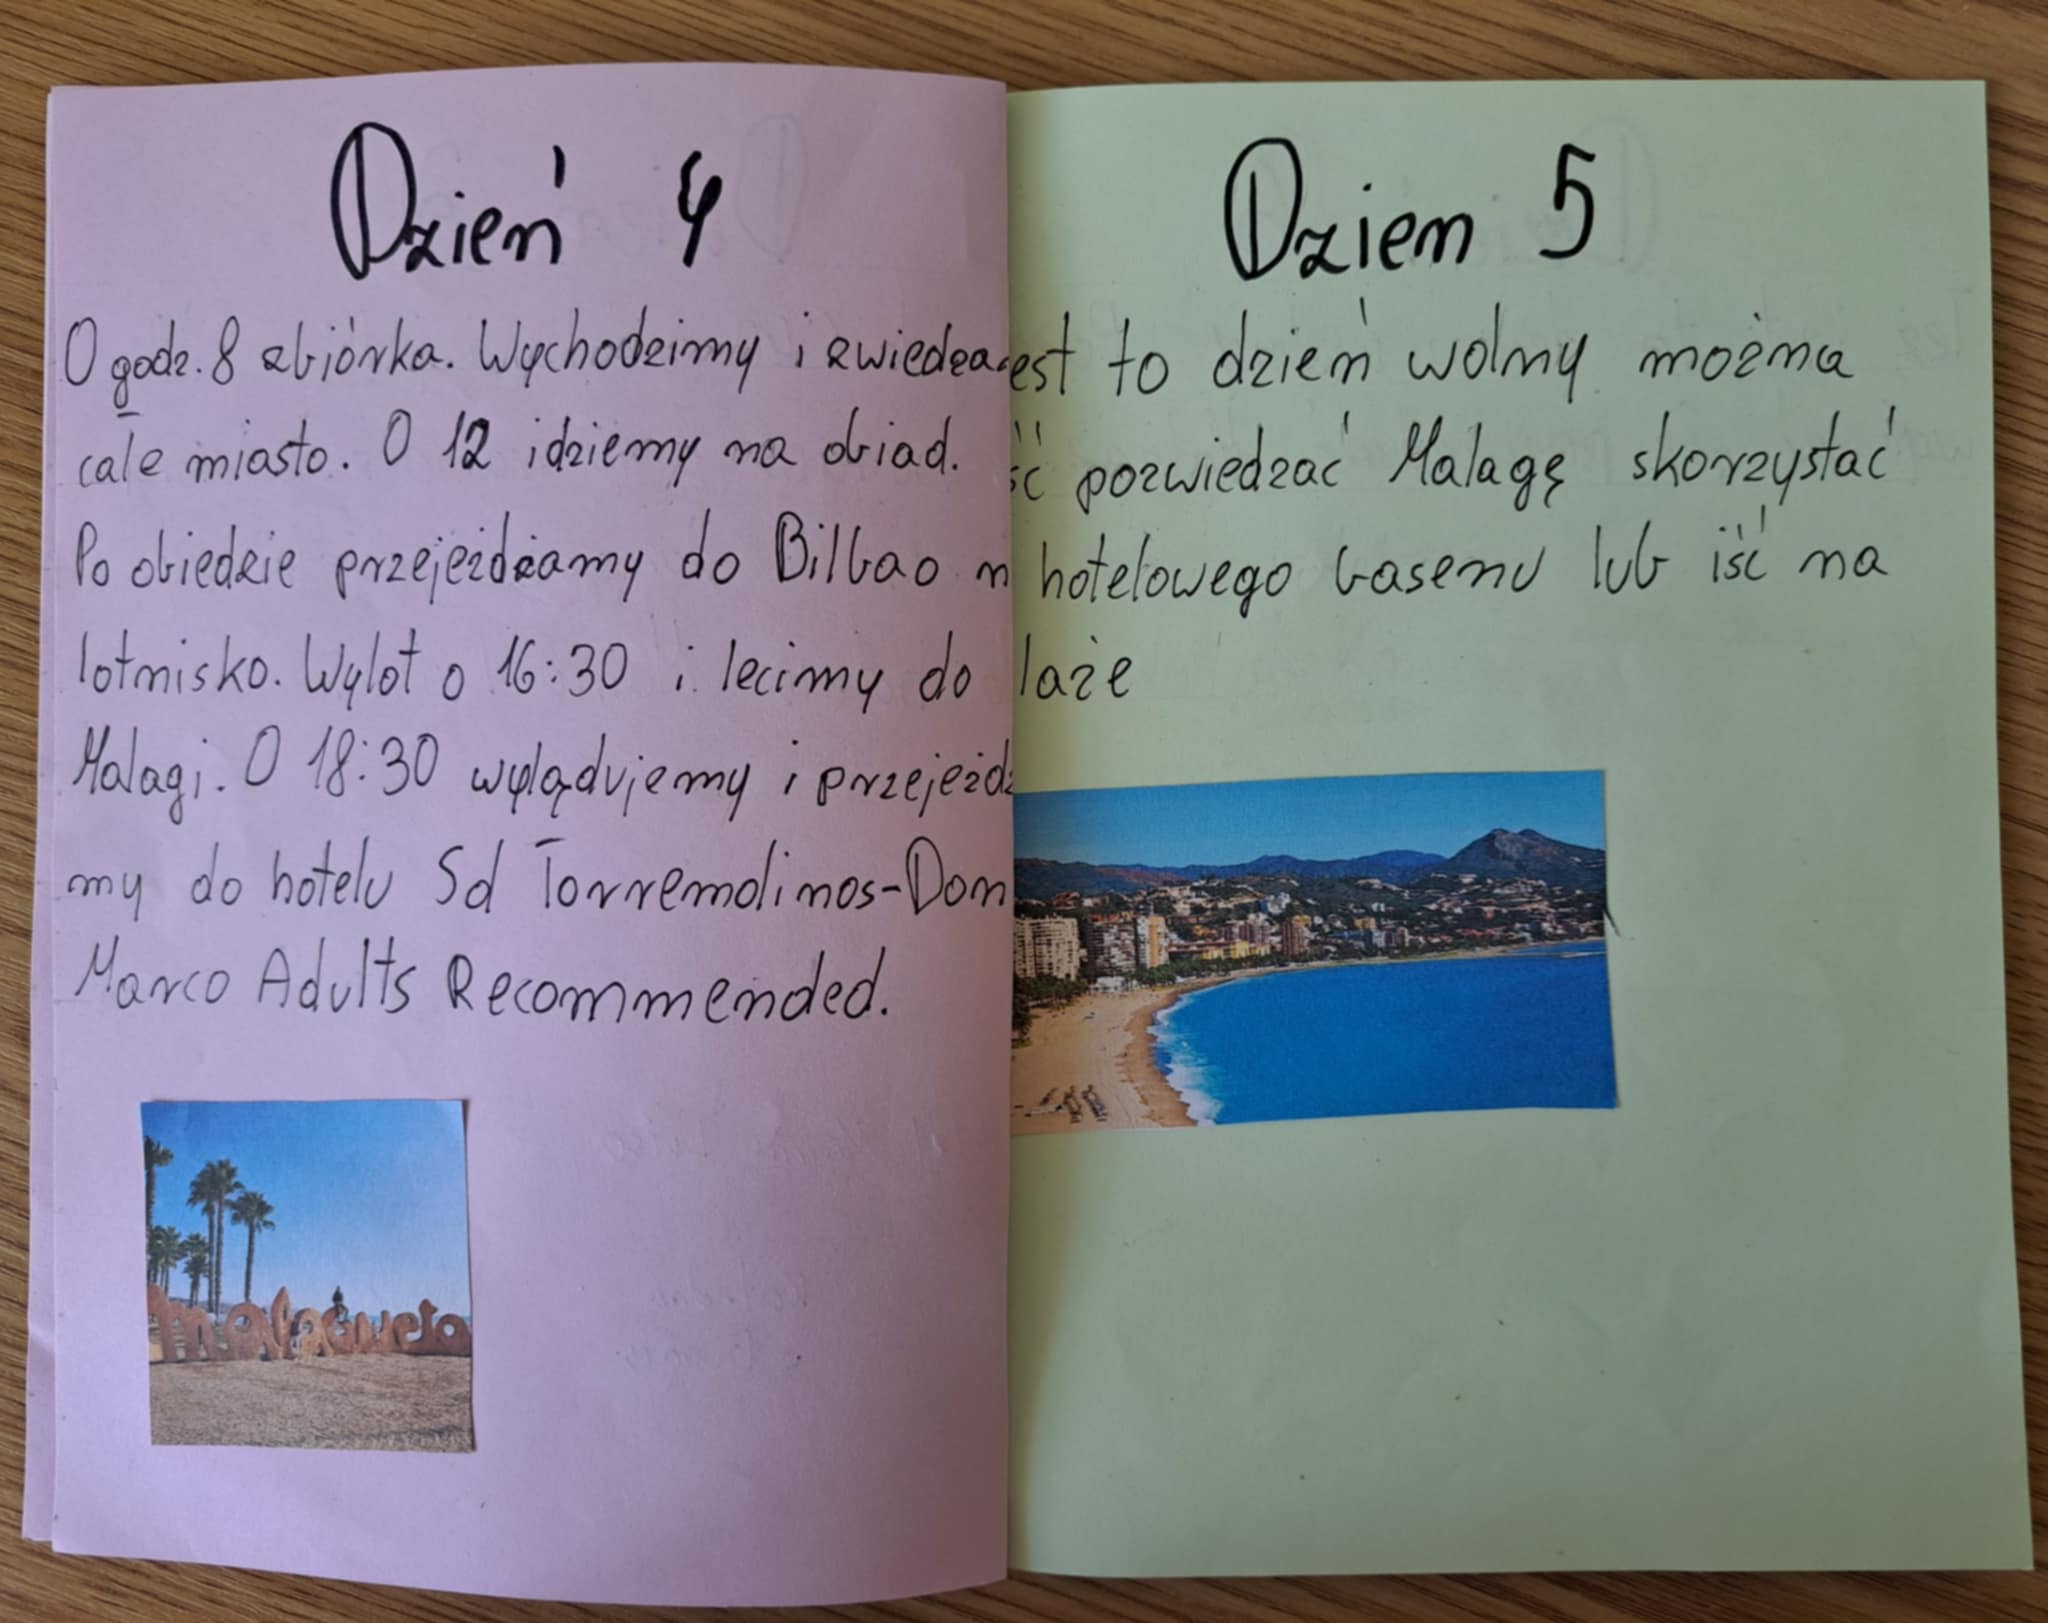 Dzień 4
O godz. 8 zbiórka. Wychodzimy i zwiedza
cale miasto. O 12 idziemy na obiad.
Po obiedzie przejeżdżamy do Bilbao n
lotnisko. Wylot o 16:30 i lecimy do
Malagi. O 18:30 wylądujemy i przejeżdż
my do hotelu Sd Torremolinos-Don
Marco Adults Recommended.
malagueta
Dzien 5
est to dzień wolny można
ść pozwiedzać Malagę skorzystać
hotelowego basenu lub iść na
laże